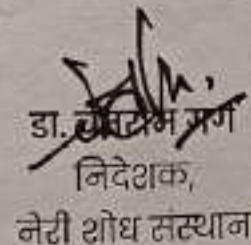 डा. चेतराम गर्ग
निदेशक,
नेरी शोध संस्थान